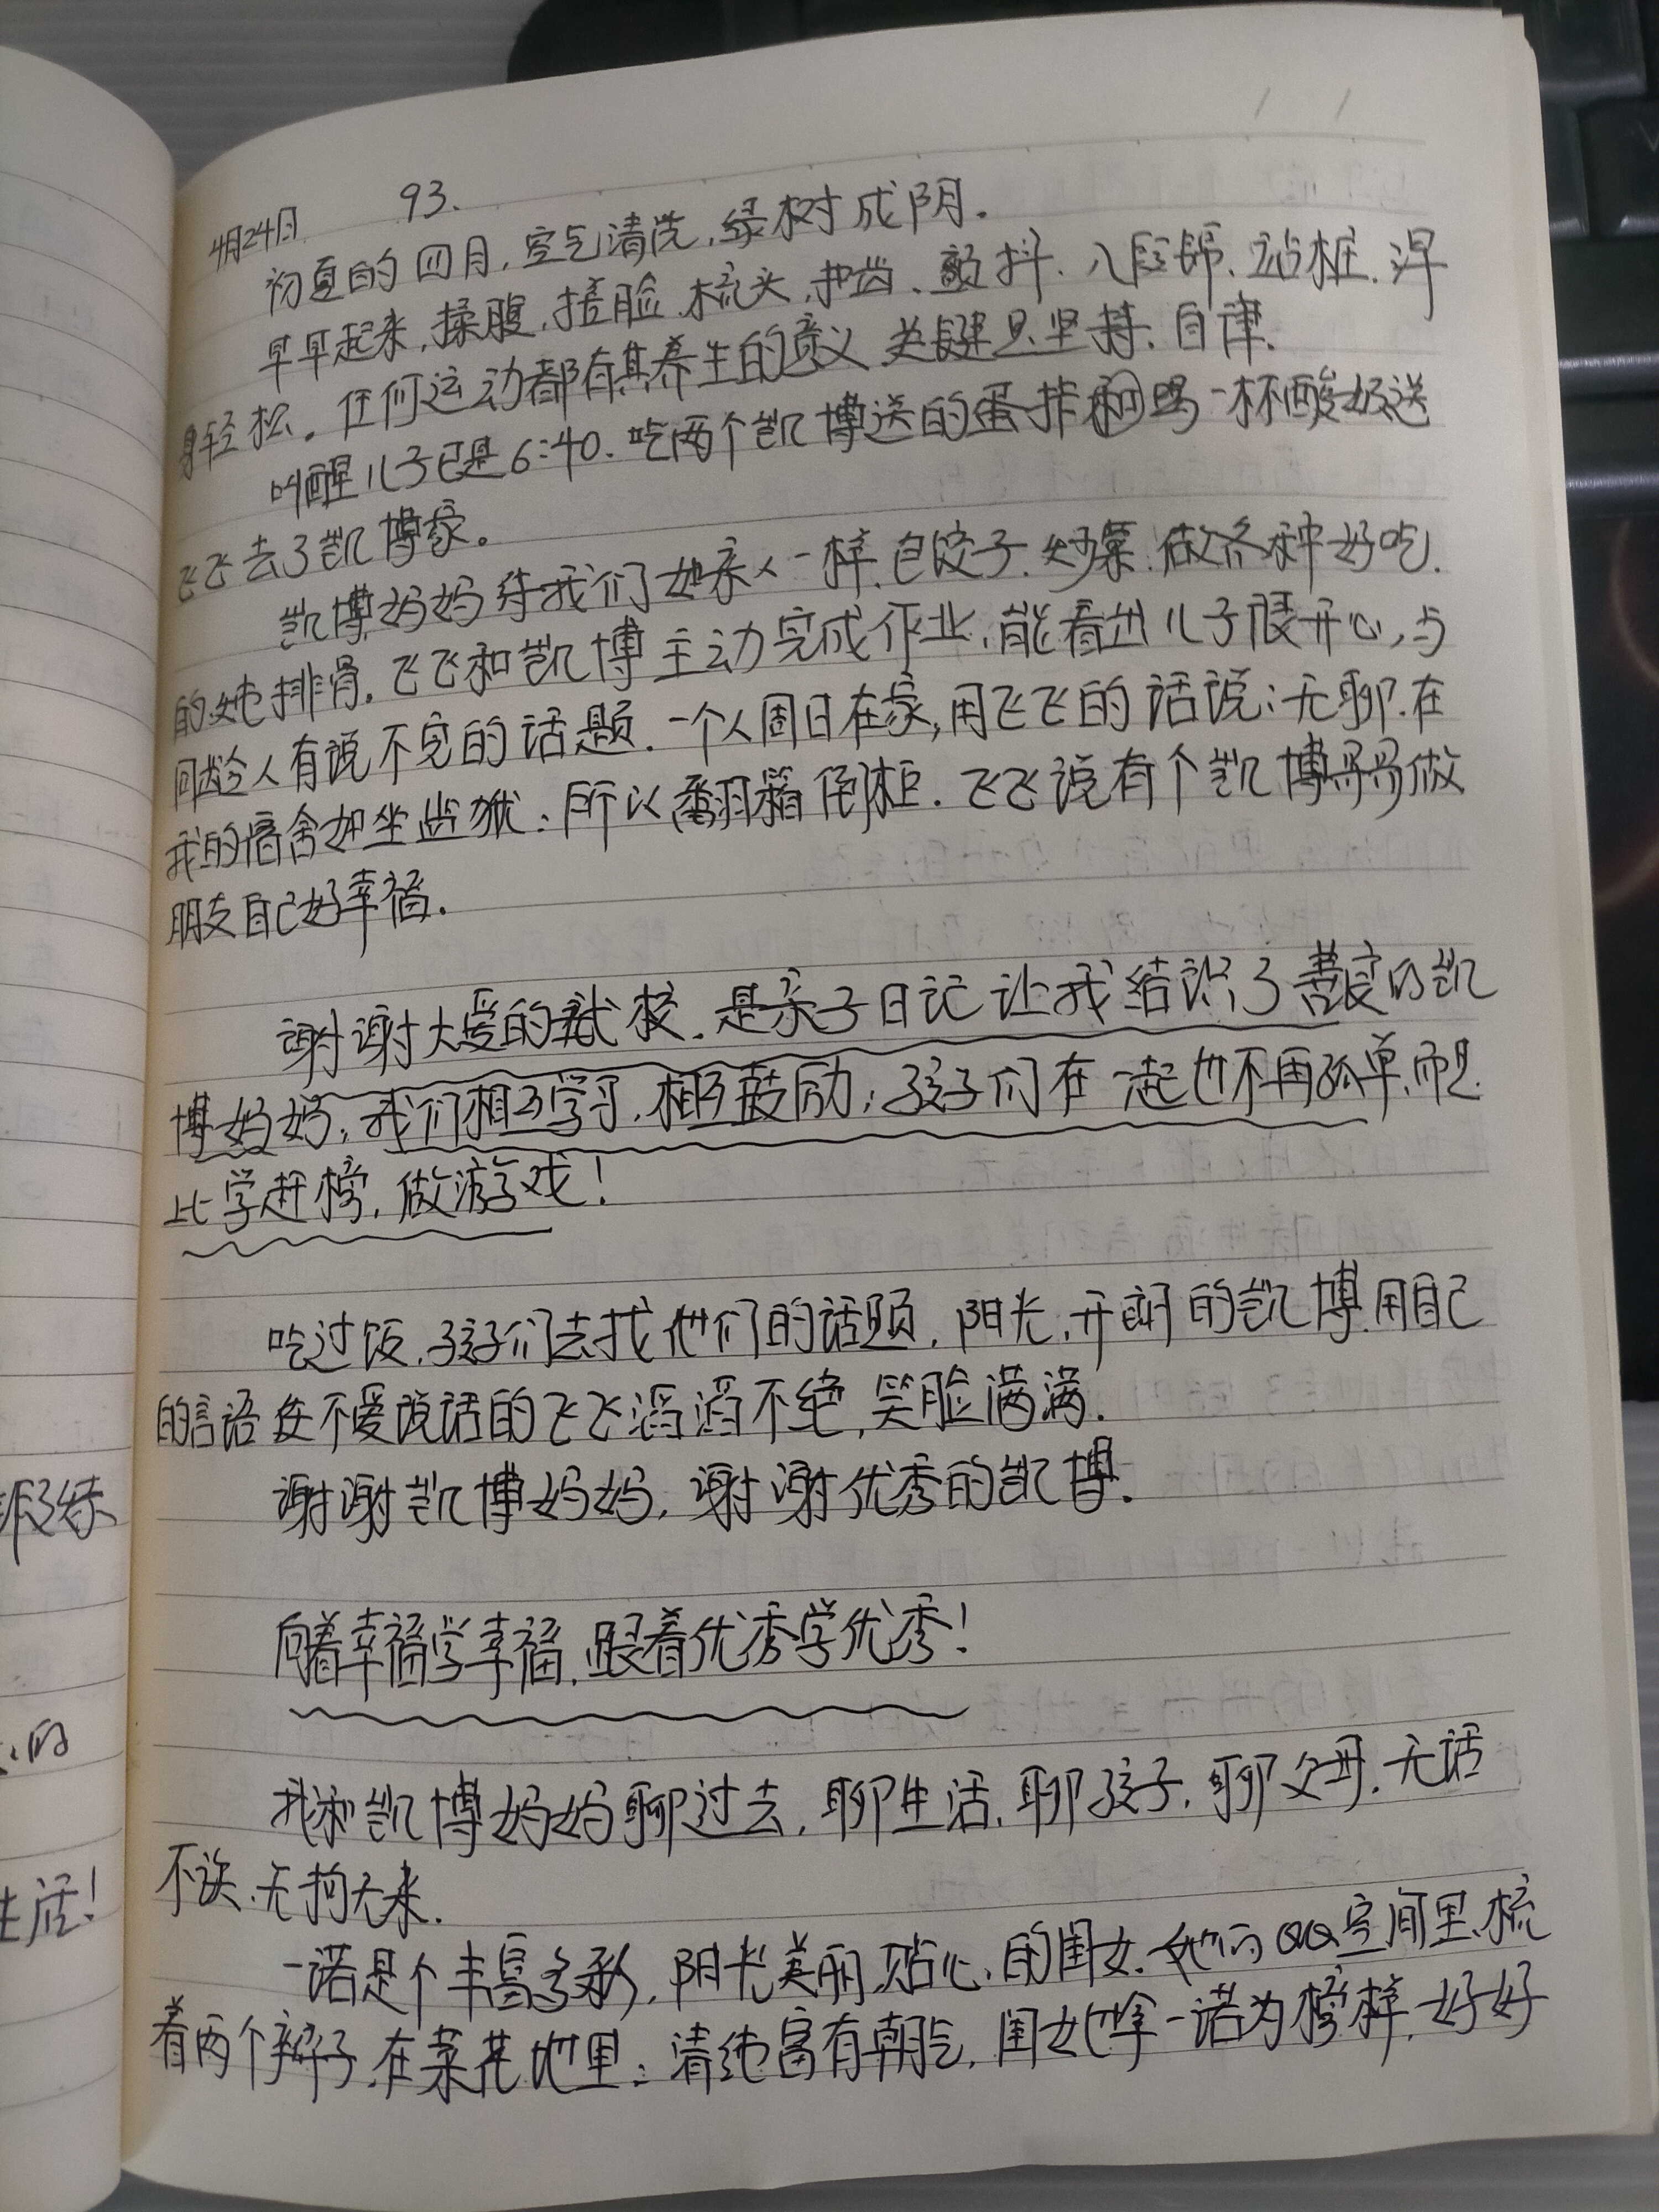 4月24日 93.
初夏的四月,空气清洗,绿树成阴.
早早起来,揉腹,搓脸.梳头,护齿、颤抖、八段锦、站桩.浑
身轻松。任何运动都有其养生的意义,关键是坚持、自律.
叫醒儿子已是6:40.吃两个凯博送的蛋挞和喝一杯酸奶送
飞飞去了凯博家。
凯博妈妈待我们如亲人一样.包饺子.炒菜.做各种好吃.
的炖排骨.飞飞和凯博主动完成作业,能看出儿子很开心,与
同龄人有说不完的话题.一个人周日在家,用飞飞的话说:无聊.在
我的宿舍如坐监狱;所以翻箱倒柜.飞飞说有个凯博哥哥做
朋友自己好幸福.
谢谢大爱的武校.是亲子日记让我结识了善良的凯
博妈妈;我们相互学习,相互鼓励;孩子们在一起也不再孤单,而是
比学赶榜,做游戏!
吃过饭,孩子们去找他们的话题,阳光,开朗的凯博.用自己
的言语 不爱说话的飞飞滔滔不绝,笑脸满满.
谢谢凯博妈妈,谢谢优秀的凯博.
向着幸福学幸福,跟着优秀学优秀!
我和凯博妈妈聊过去,聊生活,聊孩子,聊父母.无话
不谈.无拘无束.
一诺是个丰富多彩,阳光美丽,贴心,的闺女.她的QQ空间里.梳
着两个辫子.在菜花地里;清纯富有朝气,闺女也拿一诺为榜样,好好
假 续
的
生活!